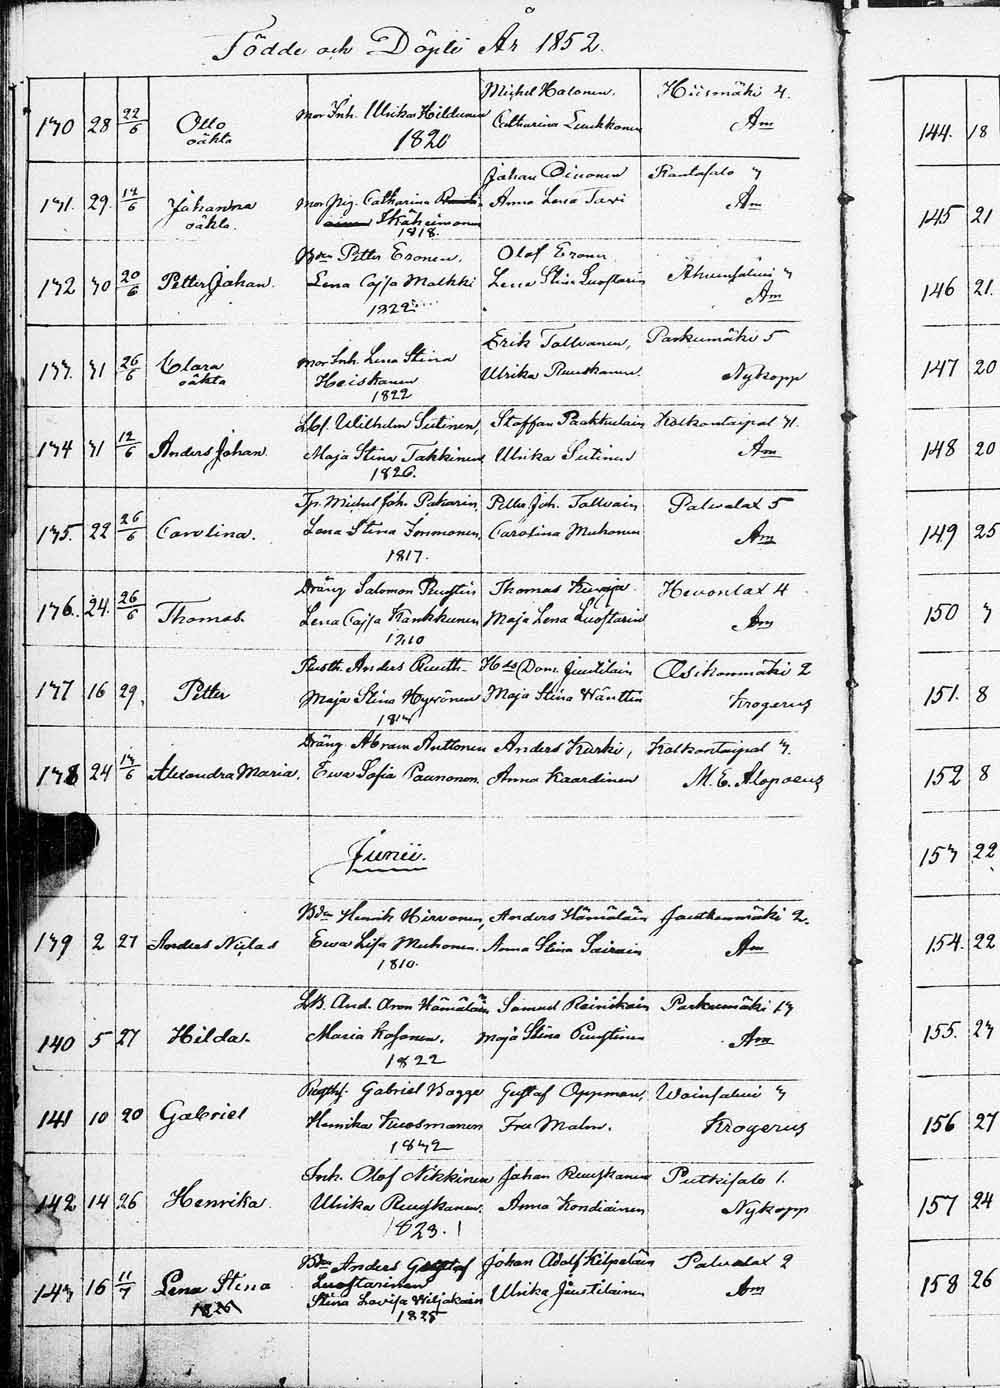 Födde och Döpte År 1852.
130 28 22/6 Otto oäkta Mor Inh. Ulrika Hildunen 1820 Michel Halonen, Catharina Luukkonen Hiismäki 4. Am
131. 29. 13/6 Johanna oäkta. Mor Pig. Catharina Ikäheimonen 1818. Johan Anna Lena Rantasalo 3 Am
132 30 20/6 Petter Johan. Bdn Petter Eronen, Lena Cajsa Malkki 1822 Olof Eronen Lena Stina Luostarin 3 Am
133. 31 26/6 Clara oäkta Mor Inh. Lena Stina Heiskanen 1822 Erik Tolvanen, Ulrika Ruuskanen. Parkumäki 5 Nykopp
134 31 12/6 Anders Johan. Wilhelm Sutinen, Maja Stina Takkinen 1826. Staffan Paakkulain Ulrika Sutinen Kolkontaipal 31. Am
135. 22 26/6 Carolina. Tp. Michel Joh. Pakarin, Lena Stina Immonen, 1817. Petter Joh. Tolvain Carolina Muhonen Palvalax 5 Am
136. 24. 26/6 Thomas. Dräng Salomon Lena Cajsa Kankkunen 1810 Thomas Maja Lena Luostarin Hevonlax 4 Am
137 16 29, Petter Rusth. Anders Maja Stina Hyvönen Hds Dom. Juutilain Maja Stina Wänttin Oskonmäki 2 Krogerus
138 24 13/6 Alexandra Maria. Dräng. Abram Anttonen Ewa Sofia Paunonen. Anders Kurki, Anna Kaardinen Kolkontaipal 3. M. E. Alopaeus
Junii.
139 2 27 Anders Niclas Bdn Henrik Hirvonen, Ewa Lisa Muhonen. 1810. Anders Hämäläin Anna Stina Sairain Juutkenmäki 2. Am
140 5 27 Hilda. LB. And. Aron Hämäläin Maria Kosonen, 1822 Samuel Reinikain Maja Stina Parkumäki 13 Am
141 10 20 Gabriel Gabriel Bagge Henrika Kuosmanen 1832 Gustaf Oppman, Fru Malm. Wainsalmi 3 Krogerus
142 14 26 Henrika. Inh. Olof Nikkinen Ulrika Ruuskanen. 1823. Johan Ruuskanen Anna Kondiainen Putkisalo 1. Nykopp
143 16 11/7 Lena Stina Bdn Anders Gustaf Luostarinen Stina Lovisa Wiljakain 1825 Johan Adolf Kilpeläin Ulrika Juutilainen Palvalax 2 Am
144. 18
145 21
146 21.
147 20
148 20
149 25
150 3
151. 8
152 8
153 22
154. 22
155. 23
156 27
157 24
158 26